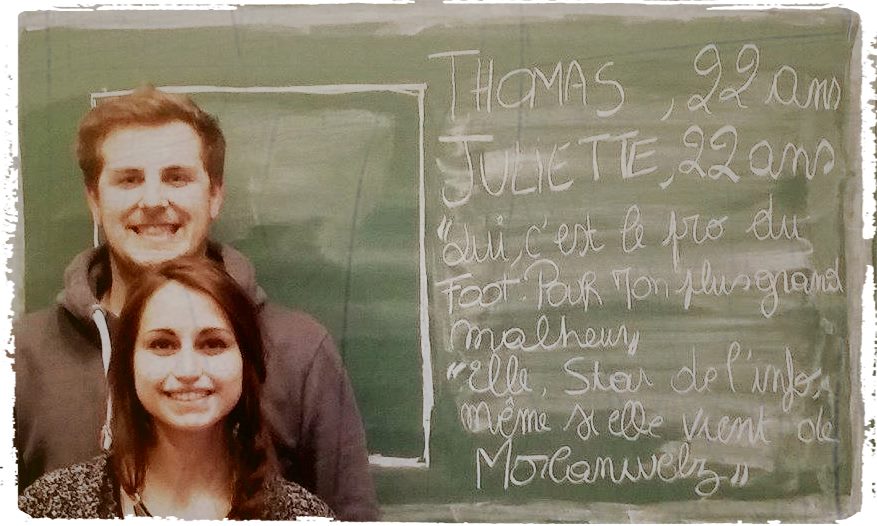 THOMAS, 22 ans
JULIETTE, 22 ans
"Lui, c'est le pro du
Foot. Pour mon plus grand
malheur"
"Elle, Star de l'info,
même si elle vient de
Morlanwelz"